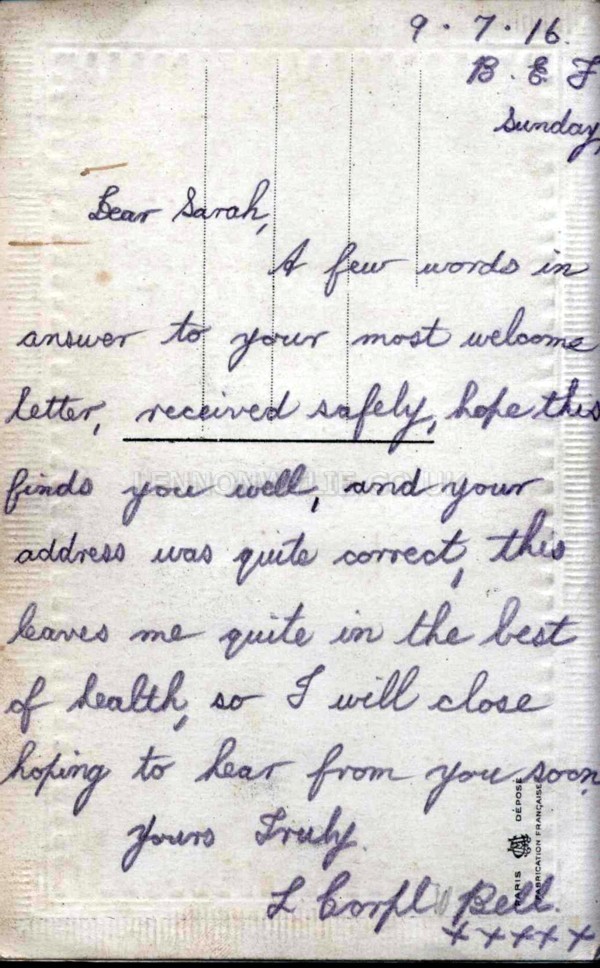 9 . 7 . 16.
B. E F
Sunday,
Dear Sarah,
A few words in
answer to your most welcome
letter, received safely, hope this
finds you well, and your
LENNONWYLIE.CO.UK
address was quite correct, this
leaves me quite in the best
of health, so I will close
hoping to hear from you soon,
Yours Truly.
L Corpl Bell.
+++++
PARIS DÉPOSÉ
FABRICATION FRANÇAISE